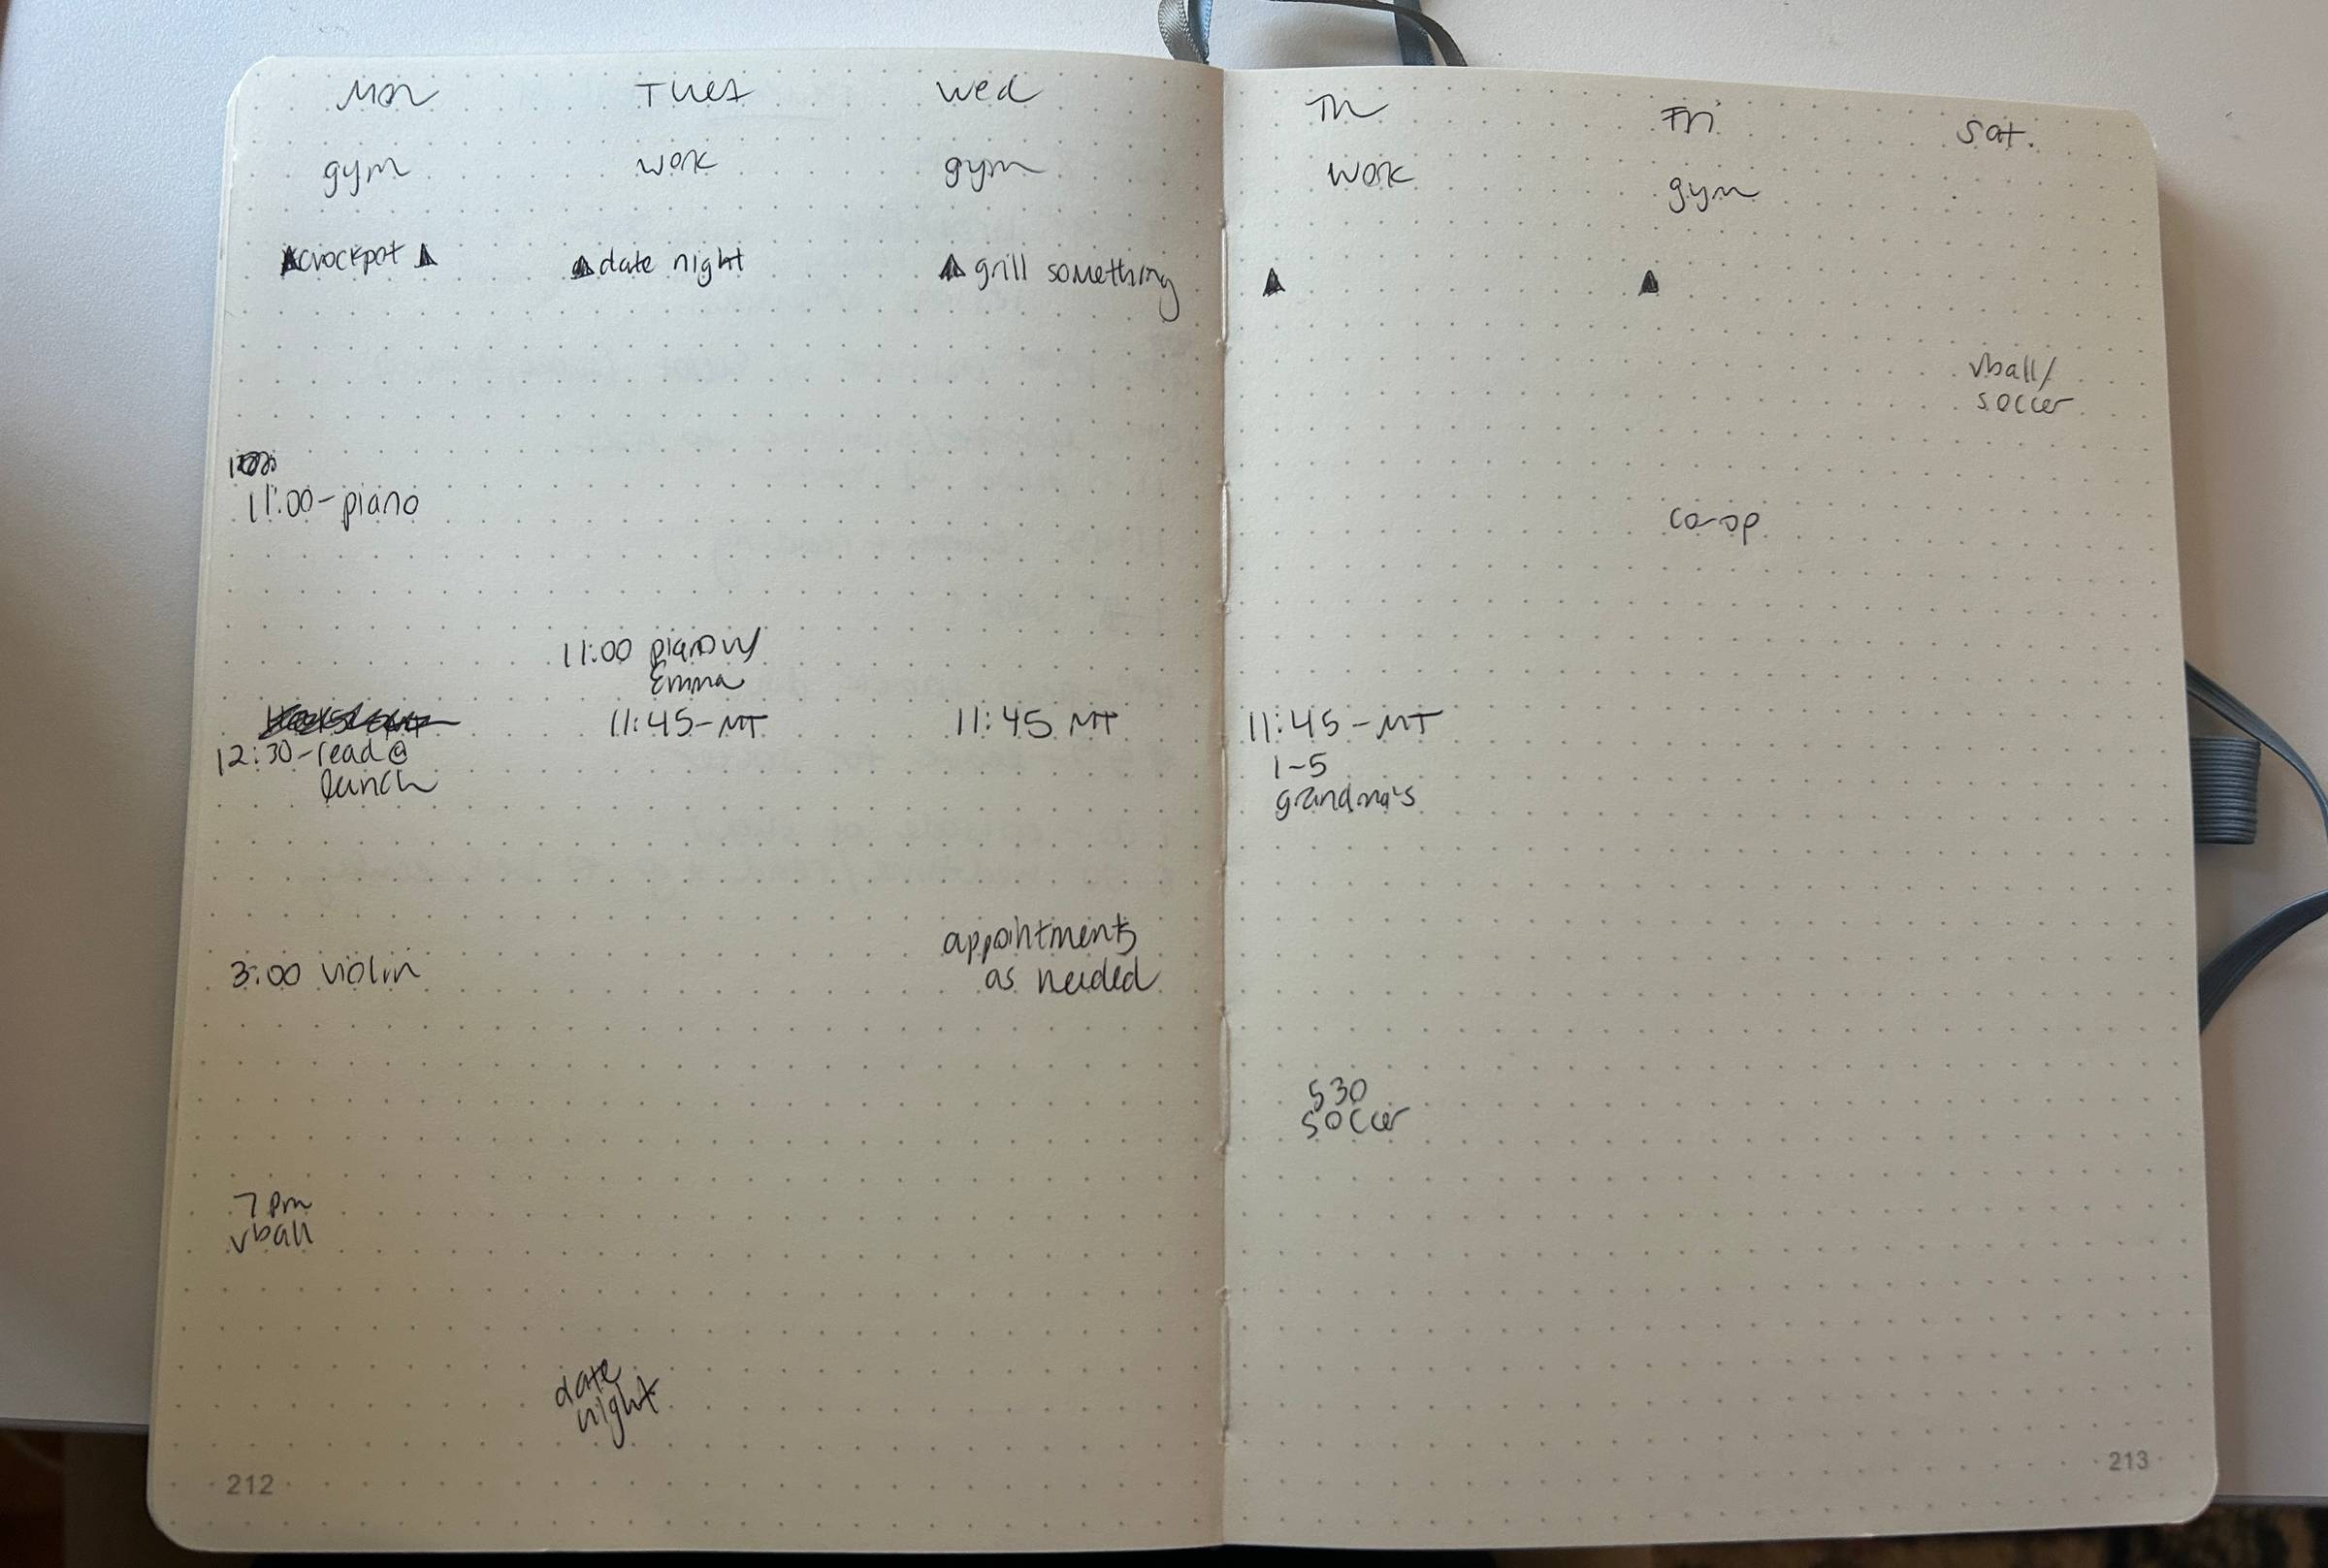 Mon
gym
crockpot
11:00-piano
12:30-read@
lunch
3:00 violin
7pm
vball
Tues
work
date night
11:00 piano w/
Emma
11:45-MT
date
night
Wed
gym
grill something
11:45 MT
appointments
as needed
212
Th
work
11:45-MT
1-5
grandma's
530
soccer
Fri
gym
co-op
Sat.
vball/
soccer
213